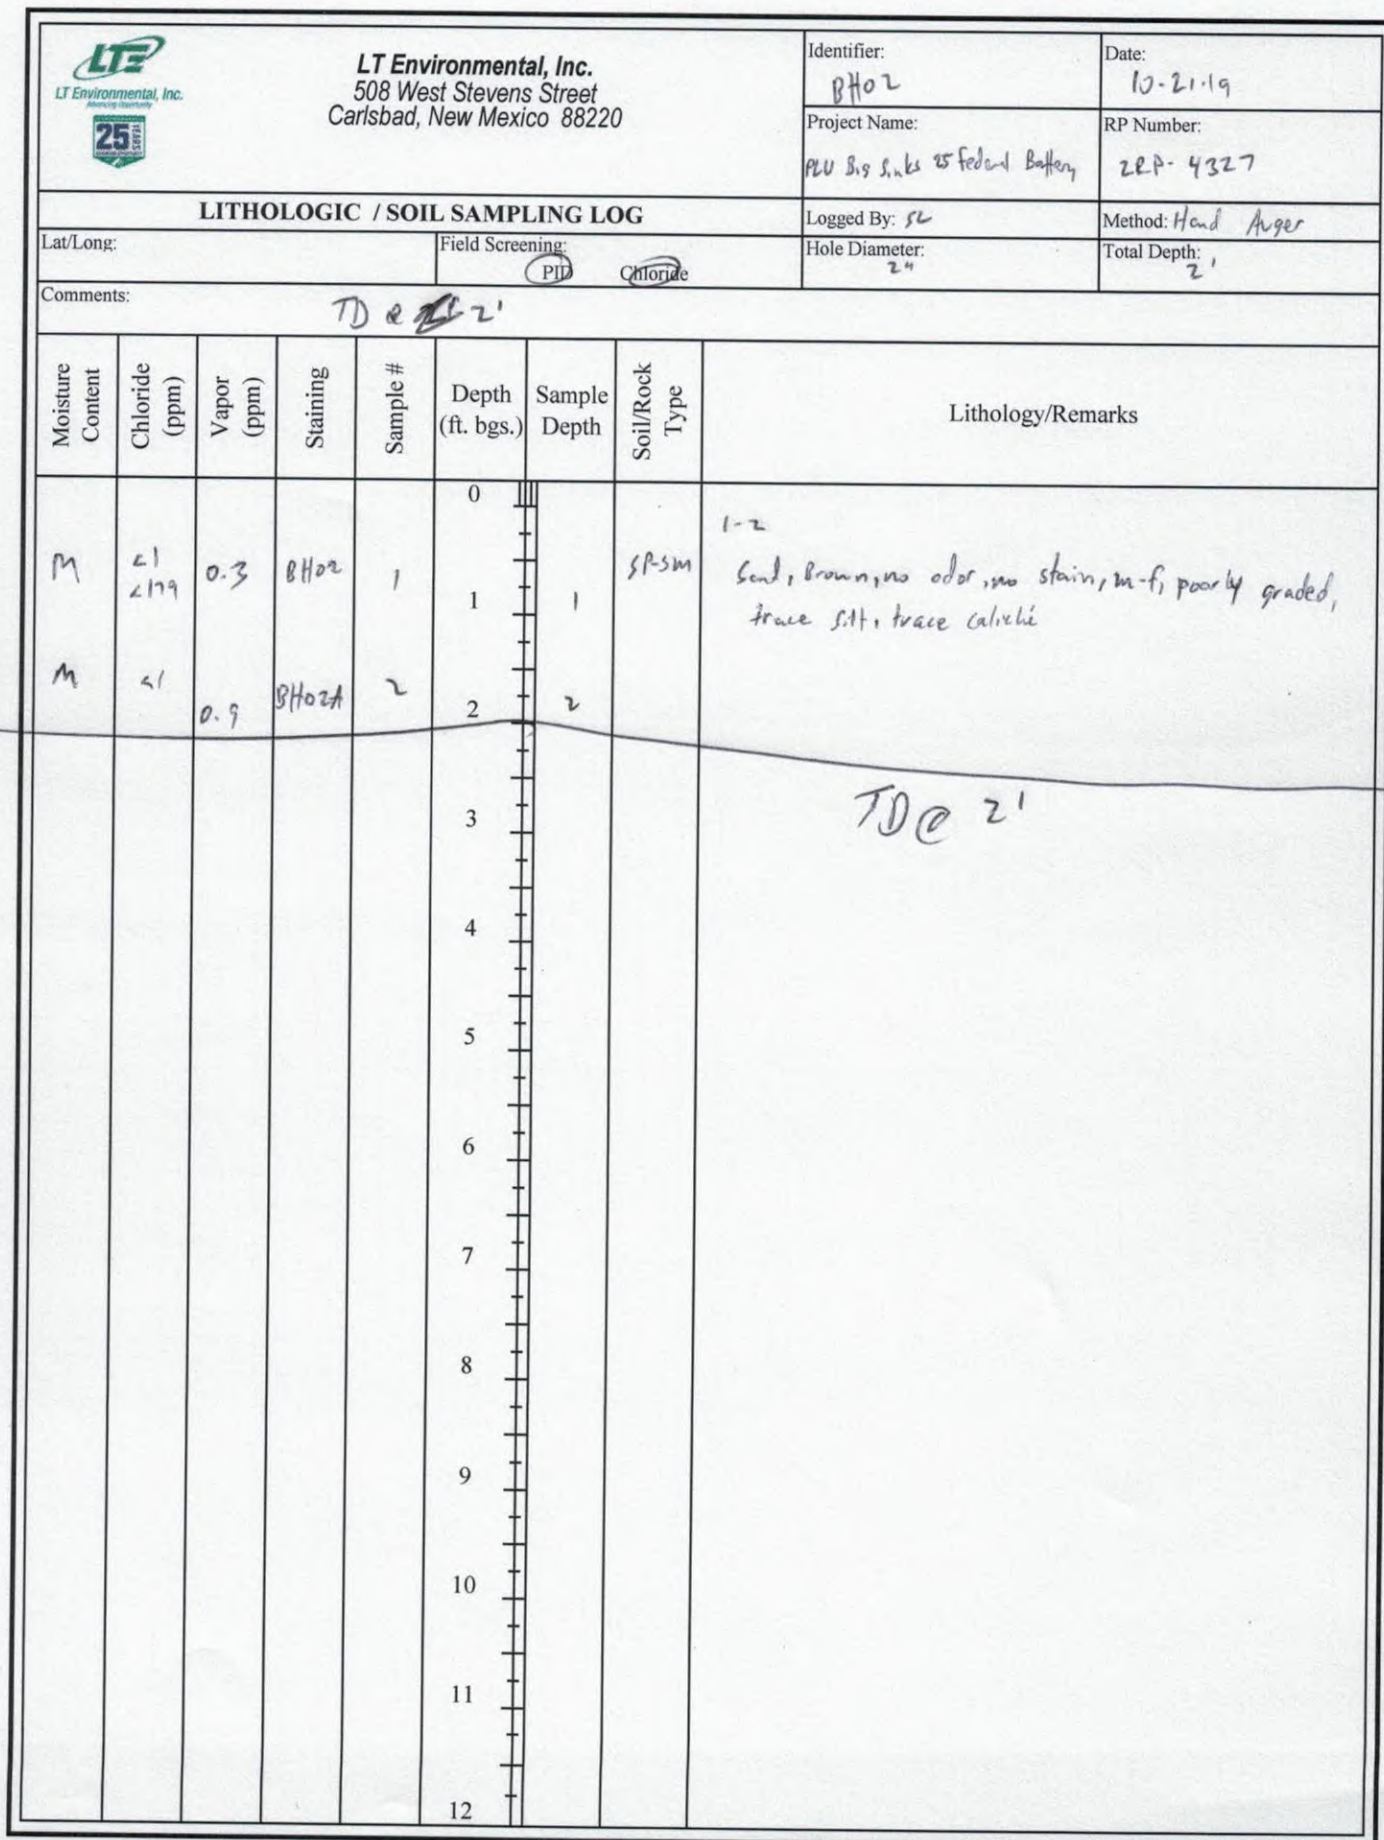 LTE
LT Environmental, Inc.
Advancing Opportunity
25 YEARS
LT Environmental, Inc.
508 West Stevens Street
Carlsbad, New Mexico 88220
Identifier:
BH02
Date:
10-21-19
Project Name:
PLU Big Sinks 25 Federal Battery
RP Number:
2RP-4327
LITHOLOGIC / SOIL SAMPLING LOG
Logged By: SL
Method: Hand Auger
Lat/Long:
Field Screening:
PID Chloride
Hole Diameter:
2"
Total Depth:
2'
Comments:
TD @ 2'
Moisture Content
Chloride (ppm)
Vapor (ppm)
Staining
Sample #
Depth (ft. bgs.)
Sample Depth
Soil/Rock Type
Lithology/Remarks
0
1-2
M <1 0.3 BH02 1 SP-SM Sand, Brown, no odor, no stain, m-f, poorly graded,
<179 1 1 trace silt, trace caliché
M <1 0.9 BH02A 2 2 2
TD @ 2'
3
4
5
6
7
8
9
10
11
12